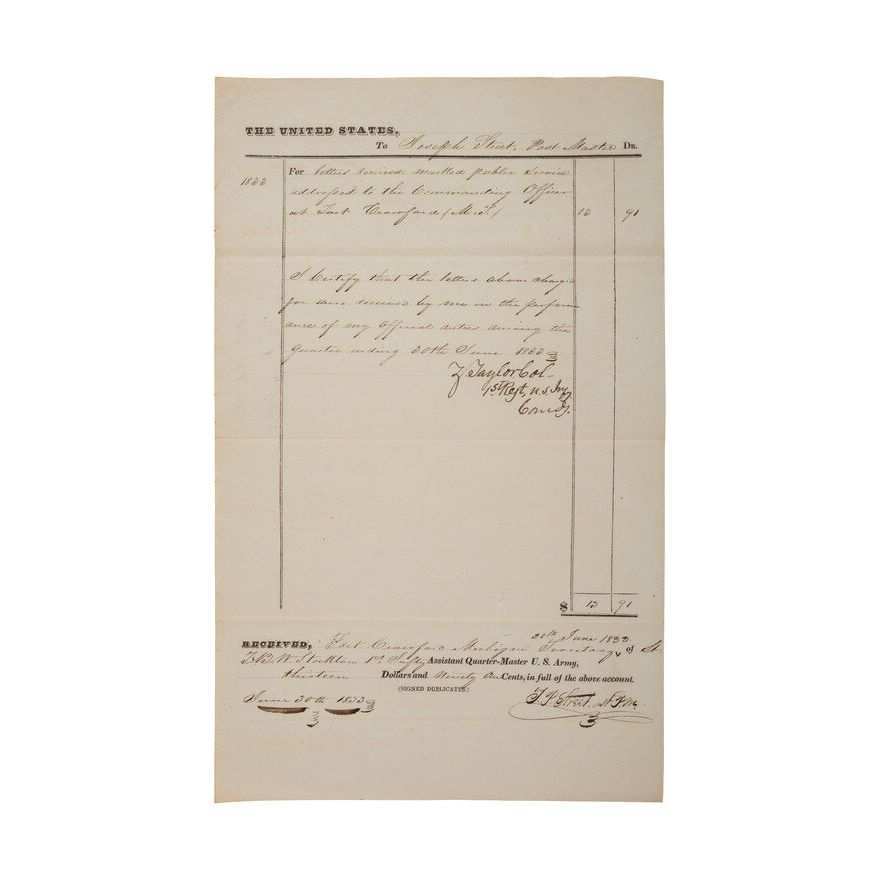 THE UNITED STATES,
To Joseph Street, Post Master Dr.
1833 For letters received marked public Service
addressed to the Commanding Officer
at Fort Crawford (M. T.) 13 91
I Certify that the letters above charged
for were received by me in the perform
ance of my Official duties during the
Quarter ending 30th June 1833
Z. Taylor Col.
1st Regt, U.S. Inf
Comg.
$ 13 91
RECEIVED, Fort Crawford Michigan Territory 30th June 1833 of
W. Stockton 1st Infty Assistant Quarter-Master U. S. Army,
thirteen Dollars and Ninety One Cents, in full of the above account.
(SIGNED DUPLICATES.)
June 30th 1833 Street,